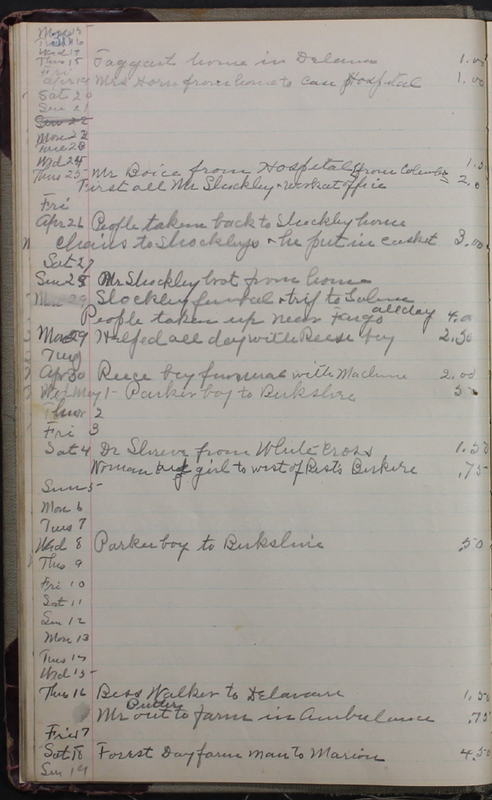 Wed 17
Thus 18 Taggart home in Delaware 1.00
Apr 19 Mrs Horn from home to Case Hospital 1.00
Sat 20
Sun 21
Mon 22
Tues 23
Wed 24
Thus 25 Mr Boice from Hospital from Columbus 1.50
First call Mr Shockley & work at office
Fri
Apr 26 People taken back to Shockley home
chairs to Shockleys & he put in casket 3.00
Sat 27
Sun 28 Mr Shockley from home
Mon 29 Shockley funeral & trip to
People taken up near all day 4.00
Mon 29 Helped all day with Reese boy 2.50
Tues
Apr 30 Reece boy funeral with Machine 2.00
Wed May 1 - Parker boy to Berkshire
Thur 2
Fri 3
Sat 4 Dr Shreve from White Cross 1.50
Woman and girl to west of Berkshire .75
Sun 5
Mon 6
Tues 7
Wed 8 Parker boy to Berkshire .50
Thus 9
Fri 10
Sat 11
Sun 12
Mon 13
Tues 14
Wed 15
Thus 16 Bess Walker to Delaware 1.50
Mr Butler out to farm in Ambulance .75
Fri 17
Sat 18 Forest Day farm man to Marion 4.50
Sun 19